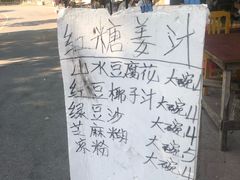 红糖姜汁
山水豆腐花 大碗4
红豆椰子汁 大碗4
绿豆沙 大碗4
芝麻糊 大碗5
麻粉 大碗4